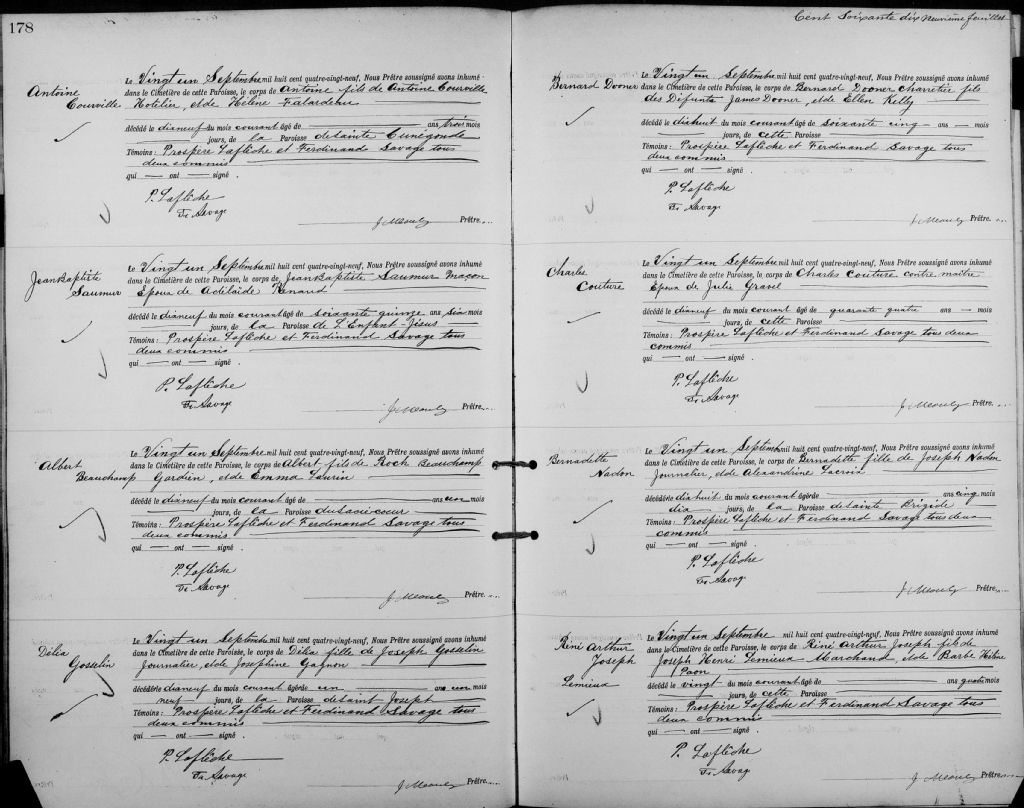 178
Antoine
Courville
Le Vingt un Septembre mil huit cent quatre-vingt-neuf, Nous Prêtre soussigné avons inhumé
dans le Cimetière de cette Paroisse, le corps de Antoine fils de Antoine Courville
Hotelier, et de Hélène Falardeau
décédé le dixneuf du mois courant âgé de ans, trois mois
jours, de la Paroisse de Sainte Cunégonde
Témoins : Prospère Laflèche et Ferdinand Savage tous
deux commis
qui — ont — signé .
P. Laflèche
Fr. Savage
Prêtre.
Jean Baptiste
Saumur
Le Vingt un Septembre mil huit cent quatre-vingt-neuf, Nous Prêtre soussigné avons inhumé
dans le Cimetière de cette Paroisse, le corps de Jean Baptiste Saumur maçon
Epoux de Adélaïde Renard
décédé le dixneuf du mois courant âgé de soixante quinze ans six mois
jours, de la Paroisse de L'Enfant-Jésus
Témoins : Prospère Laflèche et Ferdinand Savage tous
deux commis
qui — ont — signé .
P. Laflèche
Fr. Savage
Prêtre.
Albert
Beauchamp
Le Vingt un Septembre mil huit cent quatre-vingt-neuf, Nous Prêtre soussigné avons inhumé
dans le Cimetière de cette Paroisse, le corps de Albert fils de Roch Beauchamp
Gardien, et de Emma Laurin
décédé le dixneuf du mois courant âgé de ans onze mois
jours, de la Paroisse du Sacré coeur
Témoins : Prospère Laflèche et Ferdinand Savage tous
deux commis
qui — ont — signé .
P. Laflèche
Fr. Savage
Prêtre.
Délia
Gosselin
Le Vingt un Septembre mil huit cent quatre-vingt-neuf, Nous Prêtre soussigné avons inhumé
dans le Cimetière de cette Paroisse, le corps de Délia fille de Joseph Gosselin
Journalier, et de Josephine Gagnon
décédée le dixneuf du mois courant âgée de un ans un mois
neuf jours, de la Paroisse de Saint Joseph
Témoins : Prospère Laflèche et Ferdinand Savage tous
deux commis
qui — ont — signé .
P. Laflèche
Fr. Savage
Prêtre.
Cent Soixante dix neuvième feuillet
Bernard Dooner
Le Vingt un Septembre mil huit cent quatre-vingt-neuf, Nous Prêtre soussigné avons inhumé
dans le Cimetière de cette Paroisse, le corps de Bernard Dooner Charretier fils
des Défunts James Dooner, et de Ellen Kelly
décédé le dixhuit du mois courant âgé de soixante cinq ans — mois
jours, de cette Paroisse
Témoins : Prospère Laflèche et Ferdinand Savage tous
deux commis
qui — ont — signé .
P. Laflèche
Fr. Savage
Prêtre.
Charles
Couture
Le Vingt un Septembre mil huit cent quatre-vingt-neuf, Nous Prêtre soussigné avons inhumé
dans le Cimetière de cette Paroisse, le corps de Charles Couture contre-maître
Epoux de Julie Gravel
décédé le dixneuf du mois courant âgé de quarante quatre ans — mois
jours, de cette Paroisse
Témoins : Prospère Laflèche et Ferdinand Savage tous deux
commis
qui — ont — signé .
P. Laflèche
Fr. Savage
Prêtre.
Bernadette
Nadon
Le Vingt un Septembre mil huit cent quatre-vingt-neuf, Nous Prêtre soussigné avons inhumé
dans le Cimetière de cette Paroisse, le corps de Bernadette fille de Joseph Nadon
Journalier, et de Alexandrine Lacroix
décédée le dixhuit du mois courant âgée de ans cinq mois
dix jours, de la Paroisse de Sainte Brigide
Témoins : Prospère Laflèche et Ferdinand Savage tous deux
commis
qui — ont — signé .
P. Laflèche
Fr. Savage
Prêtre.
Réné Arthur
Joseph
Lemieux
Le Vingt un Septembre mil huit cent quatre-vingt-neuf, Nous Prêtre soussigné avons inhumé
dans le Cimetière de cette Paroisse, le corps de Réné Arthur Joseph fils de
Joseph Henri Lemieux Marchand, et de Barbe Hélène
Paon
décédé le vingt du mois courant âgé de ans quatre mois
jours, de cette Paroisse
Témoins : Prospère Laflèche et Ferdinand Savage tous
deux commis
qui — ont — signé .
P. Laflèche
Fr. Savage
Prêtre.